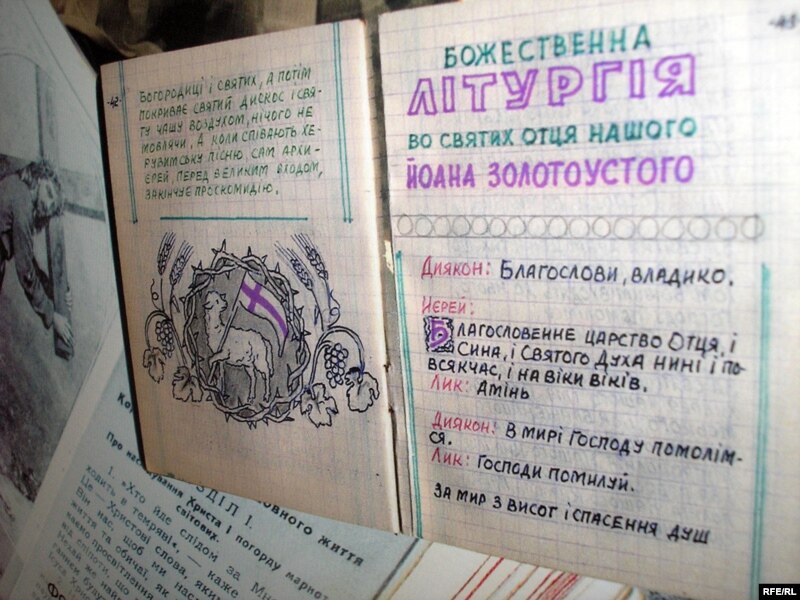 -42-
Богородиці і святих, а потім
покриває святий дискос і свя-
ту чашу воздухом, нічого не
мовлячи, а коли співають Хе-
рувимську пісню, сам архи-
єрей, перед великим входом,
закінчує проскомидію.
-43-
БОЖЕСТВЕННА
ЛІТУРГІЯ
ВО СВЯТИХ ОТЦЯ НАШОГО
ЙОАНА ЗОЛОТОУСТОГО
Диякон: Благослови, владико.
Иєрей:
Благословенне царство Отця, і
Сина, і Святого Духа нині і по-
всякчас, і на віки віків.
Лик: Амінь
Диякон: В мирі Господу помолім-
ся.
Лик: Господи помилуй.
За мир з висот і спасення душ
ДІЛ І.
ховного життя
Про наслідування Христа і погорду марнот
світових.
1. „Хто йде слідом за Мно
ходить в темряві", — каже
Це є Христові слова, яки
Він нас, щоб ми насл
життя та обичаї, як
RFE/RL